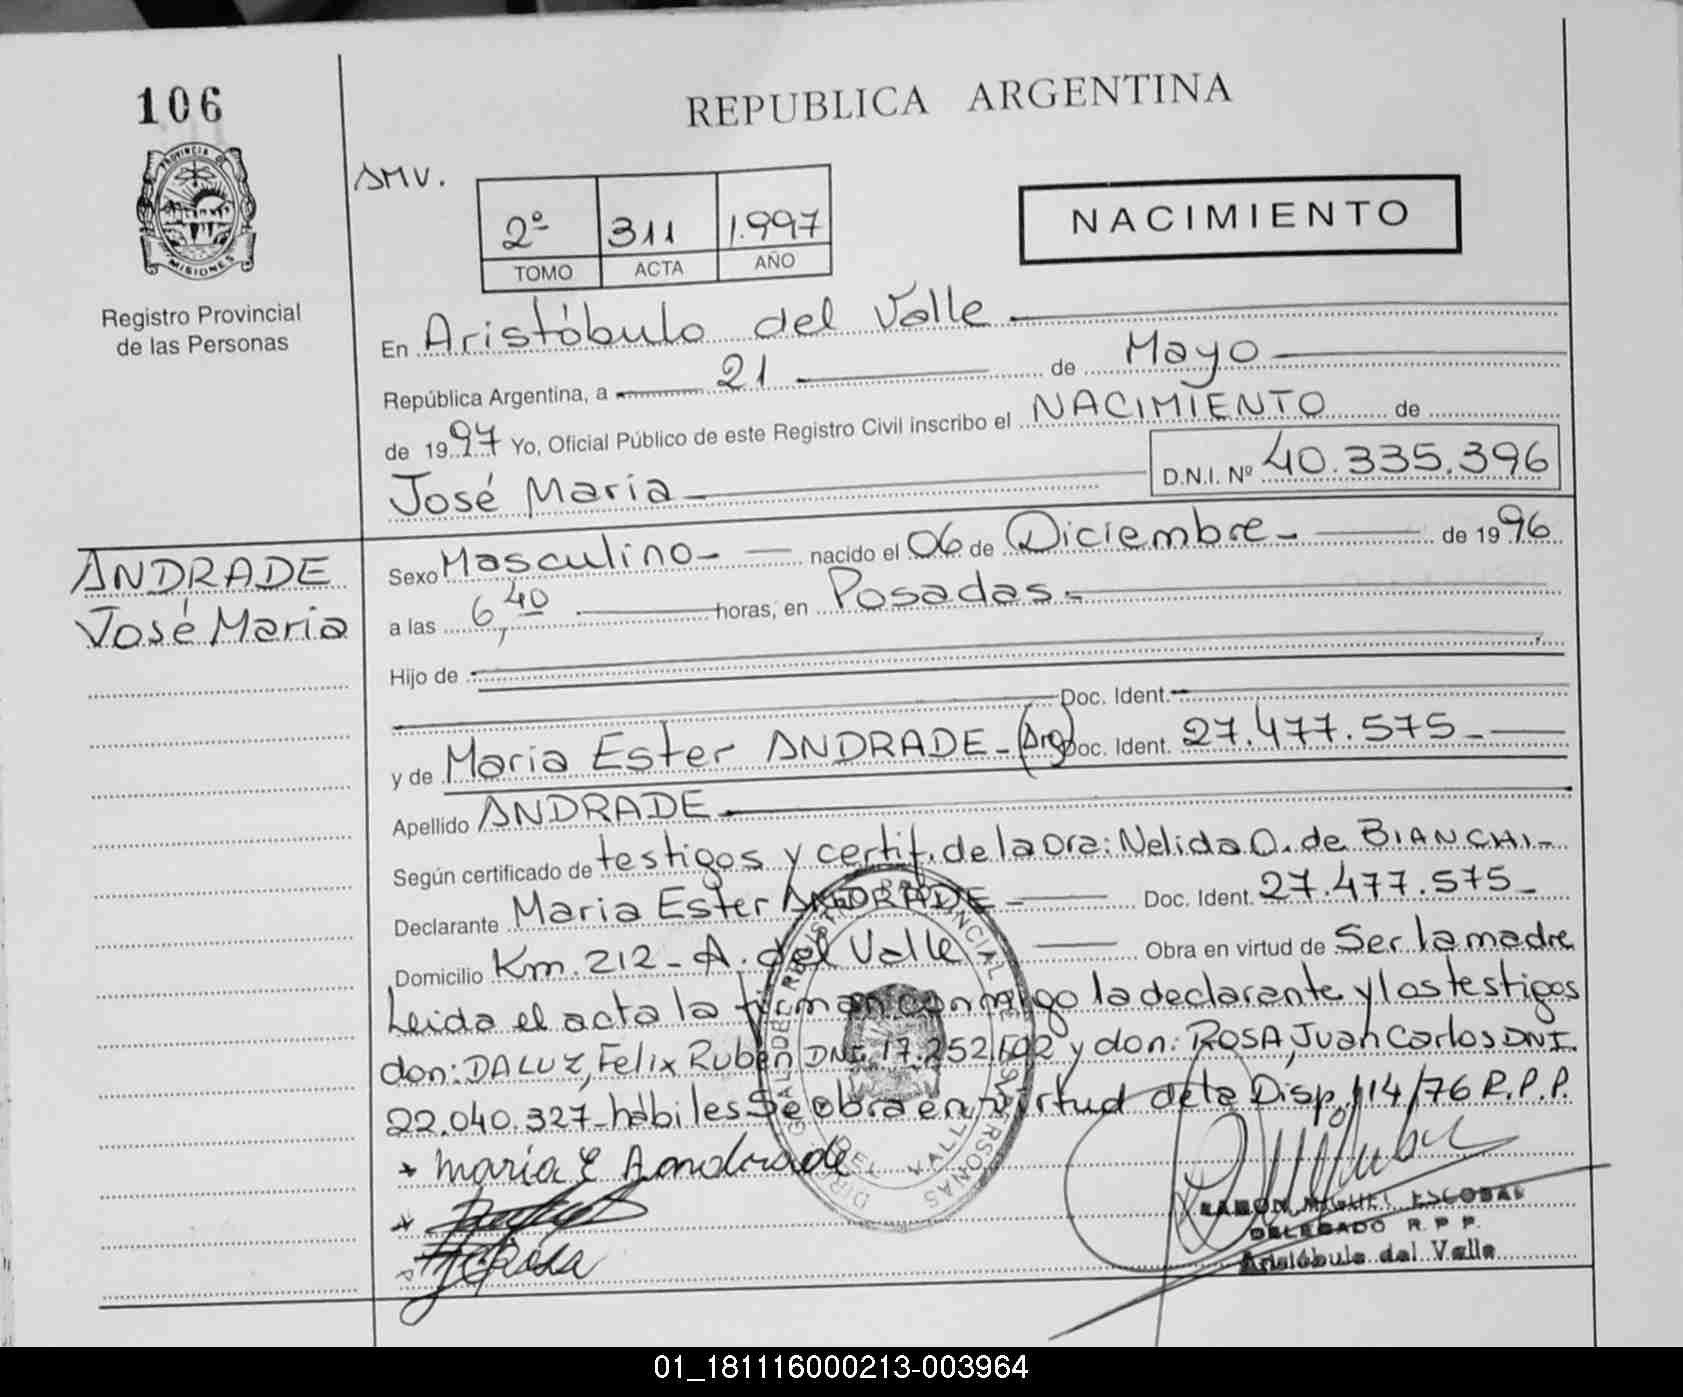 106
REPUBLICA ARGENTINA
PROVINCIA DE
MISIONES
Registro Provincial
de las Personas
SMV.
2º 311 1.997
TOMO ACTA AÑO
NACIMIENTO
En Aristóbulo del Valle
República Argentina, a 21 de Mayo
de 1997 Yo, Oficial Público de este Registro Civil inscribo el NACIMIENTO de
José Maria D.N.I. Nº 40.335.396
ANDRADE
José Maria
Sexo Masculino- nacido el 06 de Diciembre- de 1996
a las 6,40 horas, en Posadas.-
Hijo de
Doc. Ident.
y de Maria Ester ANDRADE- (Arg) Doc. Ident. 27.477.575-
Apellido ANDRADE
Según certificado de testigos y certif. de la Dra: Nelida O. de BIANCHI-
Declarante Maria Ester ANDRADE- Doc. Ident. 27.477.575-
Domicilio Km. 212- A. del Valle Obra en virtud de Ser la madre
Leida el acta la firman conmigo la declarante y los testigos
don: DA LUZ, Felix Rubén DNI. 17.252.602 y don: ROSA, Juan Carlos DNI.
22.040.327- hábiles Se obra en virtud de la Disp. 114/76 R.P.P.
Maria E Aandrade
RAMON MIGUEL ESCOBAR
DELEGADO R. P. P.
Aristóbulo del Valle
01_181116000213-003964